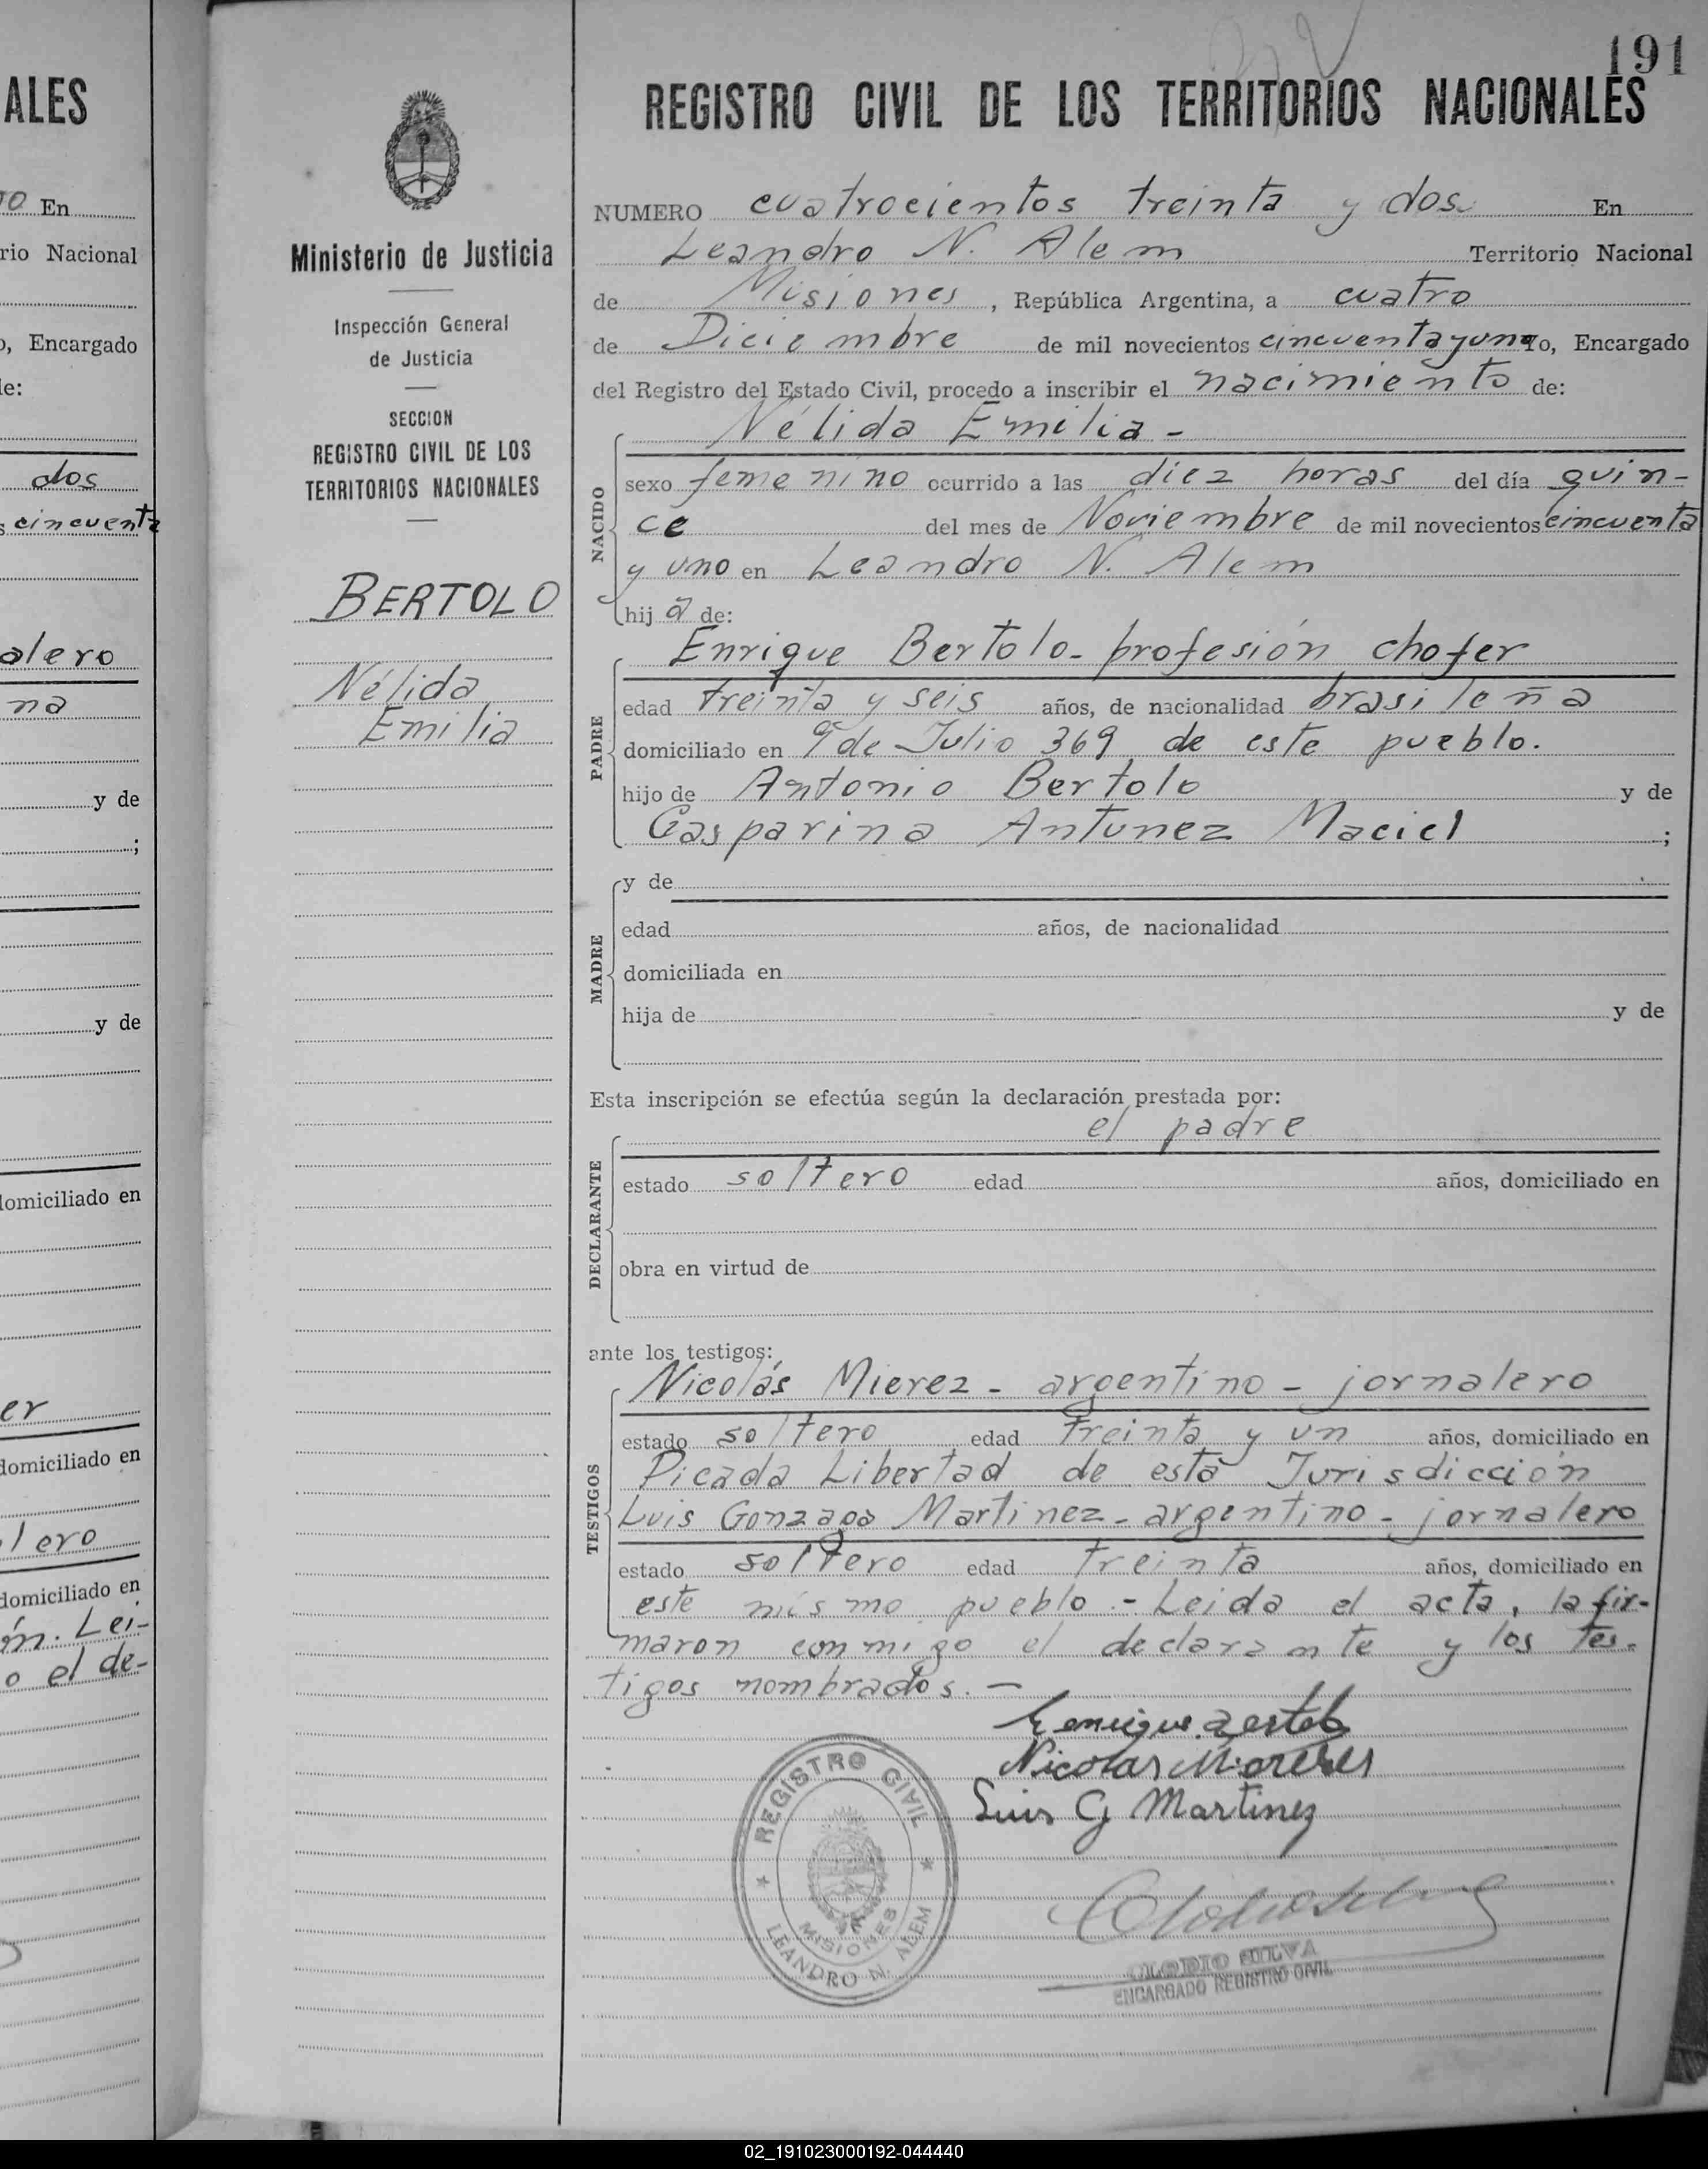 ALES
10 En
rio Nacional
o, Encargado
le:
dos
s cincuenta
alero
na
y de
;
y de
domiciliado en
er
domiciliado en
lero
domiciliado en
ém. Lei-
o el de-
191
REGISTRO CIVIL DE LOS TERRITORIOS NACIONALES
Ministerio de Justicia
Inspección General
de Justicia
SECCION
REGISTRO CIVIL DE LOS
TERRITORIOS NACIONALES
BERTOLO
Nélida
Emilia
NUMERO cuatrocientos treinta y dos En
Leandro N. Alem Territorio Nacional
de Misiones, República Argentina, a cuatro
de Diciembre de mil novecientos cincuenta y uno yo, Encargado
del Registro del Estado Civil, procedo a inscribir el nacimiento de:
Nélida Emilia -
NACIDO
sexo femenino ocurrido a las diez horas del día quin-
ce del mes de Noviembre de mil novecientos cincuenta
y uno en Leandro N. Alem
hija de:
PADRE
Enrique Bertolo - profesión chofer
edad treinta y seis años, de nacionalidad brasileña
domiciliado en 9 de Julio 369 de este pueblo.
hijo de Antonio Bertolo y de
Gasparina Antunez Maciel ;
MADRE
y de
edad años, de nacionalidad
domiciliada en
hija de y de
Esta inscripción se efectúa según la declaración prestada por:
el padre
DECLARANTE
estado soltero edad años, domiciliado en
obra en virtud de
ante los testigos:
TESTIGOS
Nicolás Mierez - argentino - jornalero
estado soltero edad treinta y un años, domiciliado en
Picada Libertad de esta Jurisdicción
Luis Gonzaga Martinez - argentino - jornalero
estado soltero edad treinta años, domiciliado en
este mismo pueblo.- Leida el acta, la fir-
maron conmigo el declarante y los tes-
tigos nombrados. -
Nicolas
Luis G Martinez
REGISTRO CIVIL
MISIONES
LEANDRO N. ALEM
CLODIO SILVA
ENCARGADO REGISTRO CIVIL
02_191023000192-044440